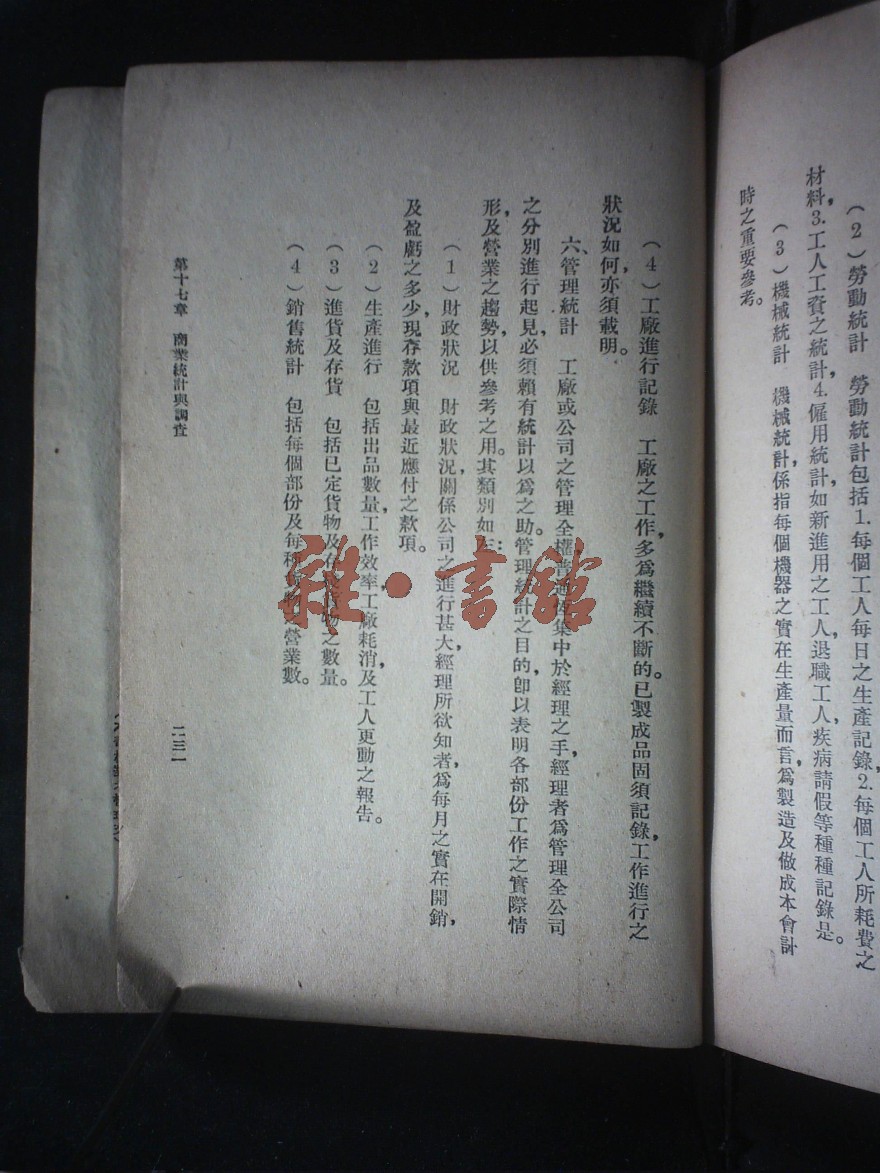 （2）勞動統計　勞動統計包括1.每個工人每日之生產記錄，2.每個工人所耗費之
材料，3.工人工資之統計，4.僱用統計，如新進用之工人，退職工人，疾病請假等種種記錄是。
（3）機械統計　機械統計，係指每個機器之實在生產量而言，爲製造及做成本會計
時之重要參考。
（4）工廠進行記錄　工廠之工作，多爲繼續不斷的。已製成品固須記錄，工作進行之
狀況如何，亦須載明。
六、管理統計　工廠或公司之管理全權，集中於經理之手，經理者爲管理全公司
之分別進行起見，必須賴有統計以爲之助。管理統計之目的，卽以表明各部份工作之實際情
形，及營業之趨勢，以供參考之用。其類別如左：
（1）財政狀況　財政狀況，關係公司之進行甚大，經理所欲知者，爲每月之實在開銷，
及盈虧之多少，現存款項與最近應付之款項。
（2）生產進行　包括出品數量，工作效率，工廠耗消，及工人更動之報告。
（3）進貨及存貨　包括已定貨物及存貨物之數量。
（4）銷售統計　包括每個部份及每種營業數。
第十七章　商業統計與調查
二三一
雜·書館